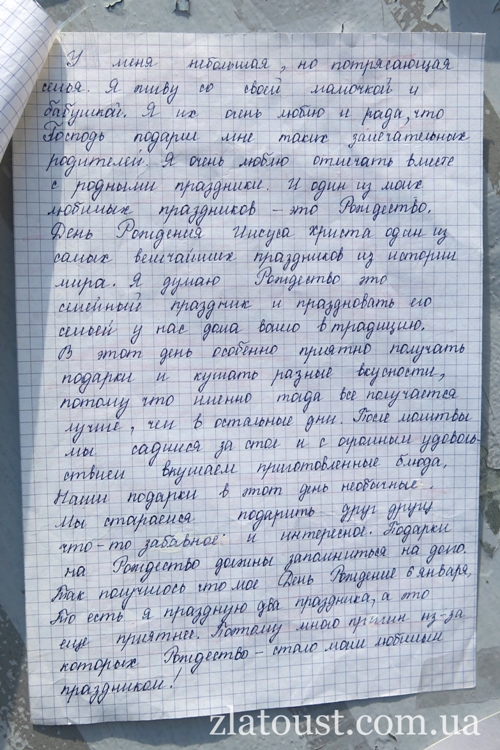 У меня небольшая, но потрясающая
семья. Я живу со своей мамочкой и
бабушкой. Я их очень люблю и рада, что
Господь подарил мне таких замечательных
родителей. Я очень люблю отмечать вместе
с родными праздники. И один из моих
любимых праздников – это Рождество.
День Рождения Иисуса Христа один из
самых величайших праздников из истории
мира. Я думаю Рождество это
семейный праздник и праздновать его
семьей у нас дома вошло в традицию.
В этот день особенно приятно получать
подарки и кушать разные вкусности,
потому что именно тогда все получается
лучше, чем в остальные дни. После молитвы
мы садимся за стол и с огромным удоволь-
ствием вкушаем приготовленные блюда.
Наши подарки в этот день необычные.
Мы стараемся подарить друг другу
что-то забавное и интересное. Подарки
на Рождество должны запомниться на долго.
Так получилось что мое День Рождение 6 января,
То есть я праздную два праздника, а это
еще приятнее. Потому много причин из-за
которых Рождество – стало моим любимым
праздником!
zlatoust.com.ua